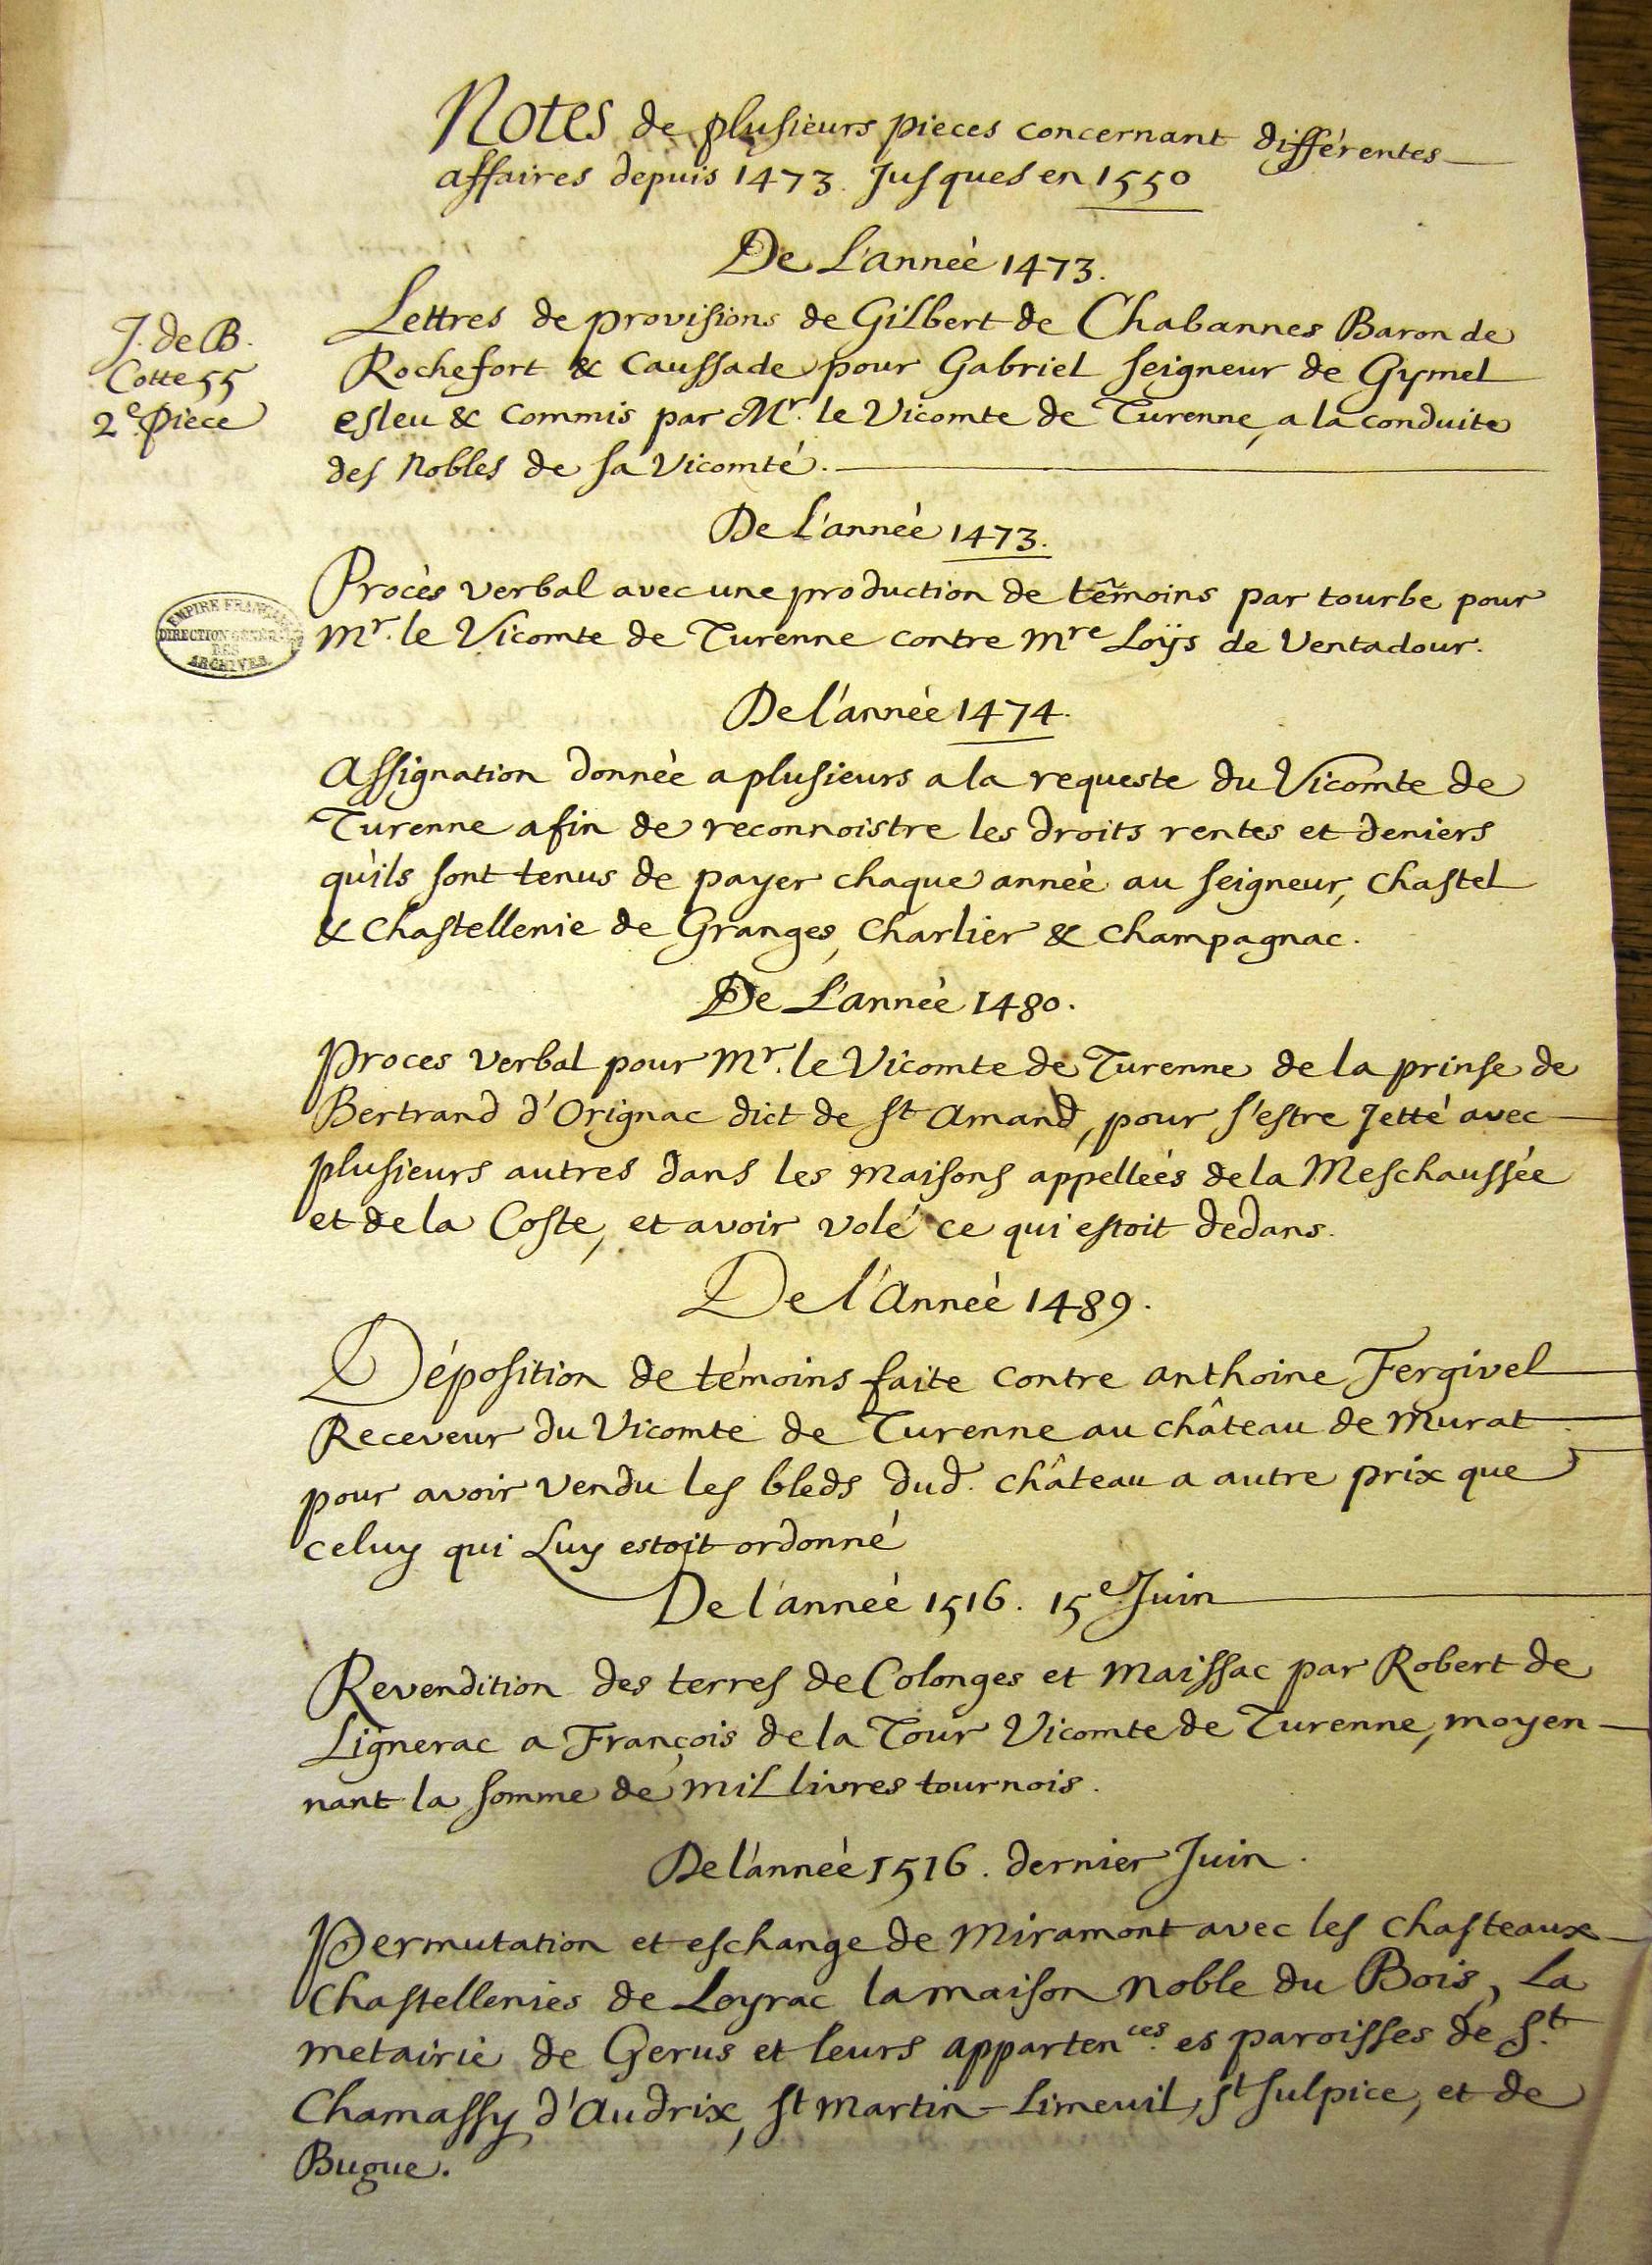 Notes de plusieurs pieces concernant différentes
affaires depuis 1473. Jusques en 1550
De L'anneé 1473.
J. de B.
Cotte 55
2e. Piece
Lettres de provisions de Gilbert de Chabannes Baron de
Rochefort & Caussade pour Gabriel seigneur de Gymel
esleu & commis par Mr. le Vicomte de Turenne, a la conduite
des Nobles de sa Vicomté.
De L'anneé 1473.
EMPIRE FRANÇAIS
DIRECTION GENER.
DES
ARCHIVES.
Procès verbal avec une production de témoins par tourbe pour
Mr. le Vicomte de Turenne contre Mre Loÿs de Ventadour.
De l'anneé 1474.
Assignation donneè a plusieurs a la requeste du Vicomte de
Turenne afin de reconnoistre les droits rentes et deniers
qu'ils sont tenus de payer chaque anneè au seigneur, chastel
& chastellenie de Granges, Charlier & Champagnac.
De L'anneé 1480.
Proces verbal pour Mr. le Vicomte de Turenne de la prinse de
Bertrand d'Orignac dict de st Amand, pour s'estre Jetté avec
plusieurs autres dans les maisons appelleés de la Meschaussée
et de la Coste, et avoir volé ce qui estoit dedans.
De l'Anneé 1489.
Déposition de témoins faite contre anthoine Fergivel
Receveur du Vicomte de Turenne au château de Murat
pour avoir vendu les bleds dud. château a autre prix que
celuy qui Luy estoit ordonné
De l'anneé 1516. 15e Juin
Revendition des terres de Colonges et Maissac par Robert de
Lignerac a François de la Tour Vicomte de Turenne, moyen
nant la somme de mil livres tournois.
De l'anneé 1516. dernier Juin.
Permutation et eschange de Miramont avec les chasteaux
Chastellenies de Loyrac la maison noble du Bois, La
metairie de Gerus et leurs apparten.ces es paroisses de St.
Chamassy d'Audrix, st Martin-Limeuil, st sulpice, et de
Bugue.